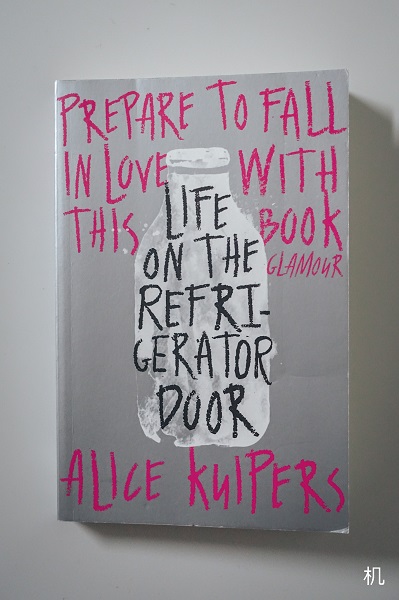 PREPARE TO FALL
IN LOVE WITH
THIS BOOK
GLAMOUR
LIFE
ON THE
REFRI-
GERATOR
DOOR
ALICE KUIPERS
机